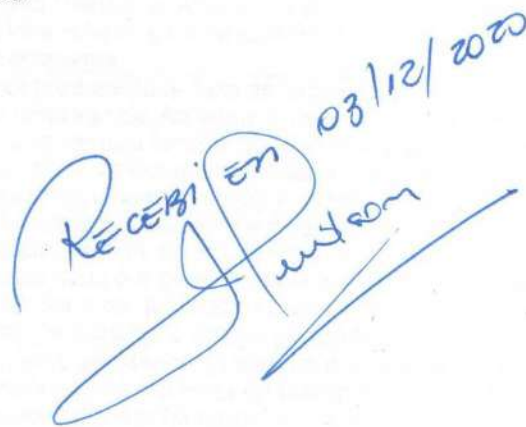 RECEBI EM 03/12/2020